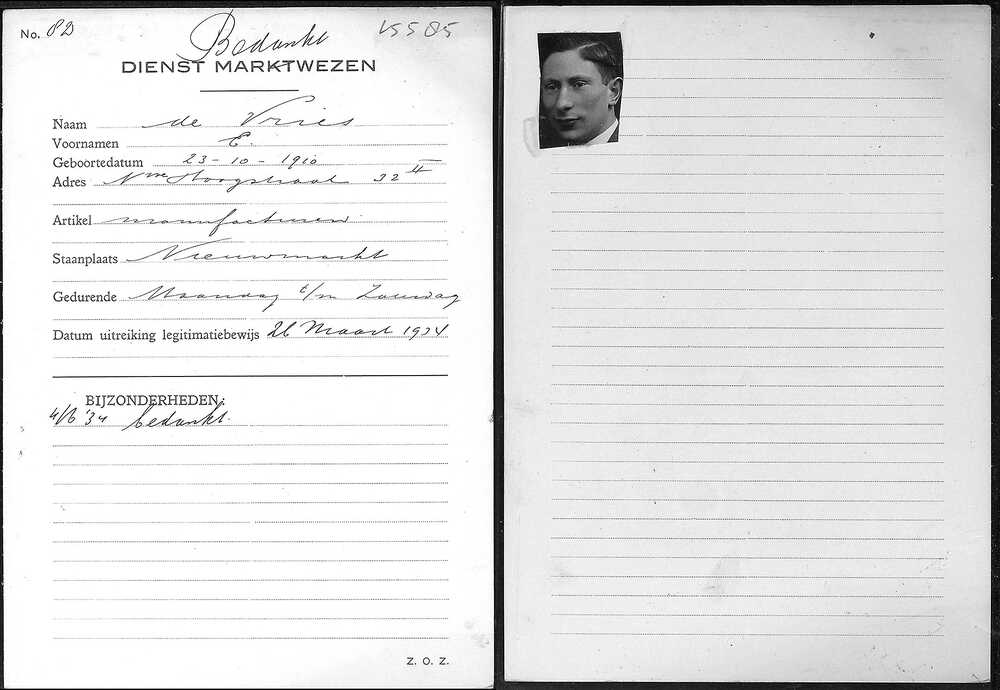 No. 82
Bedankt
DIENST MARKTWEZEN
Naam de Vries
Voornamen E.
Geboortedatum 23-10-1910
Adres Nwe Hoogstraat 32 II
Artikel manufacturen
Staanplaats Nieuwmarkt
Gedurende Maandag t/m Zondag
Datum uitreiking legitimatiebewijs 26 Maart 1934
BIJZONDERHEDEN:
'34 bedankt.
Z. O. Z.